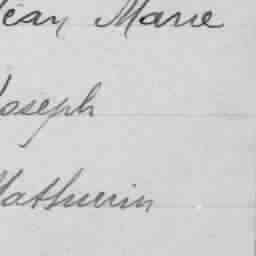 Jean Marie
Joseph
Mathurin